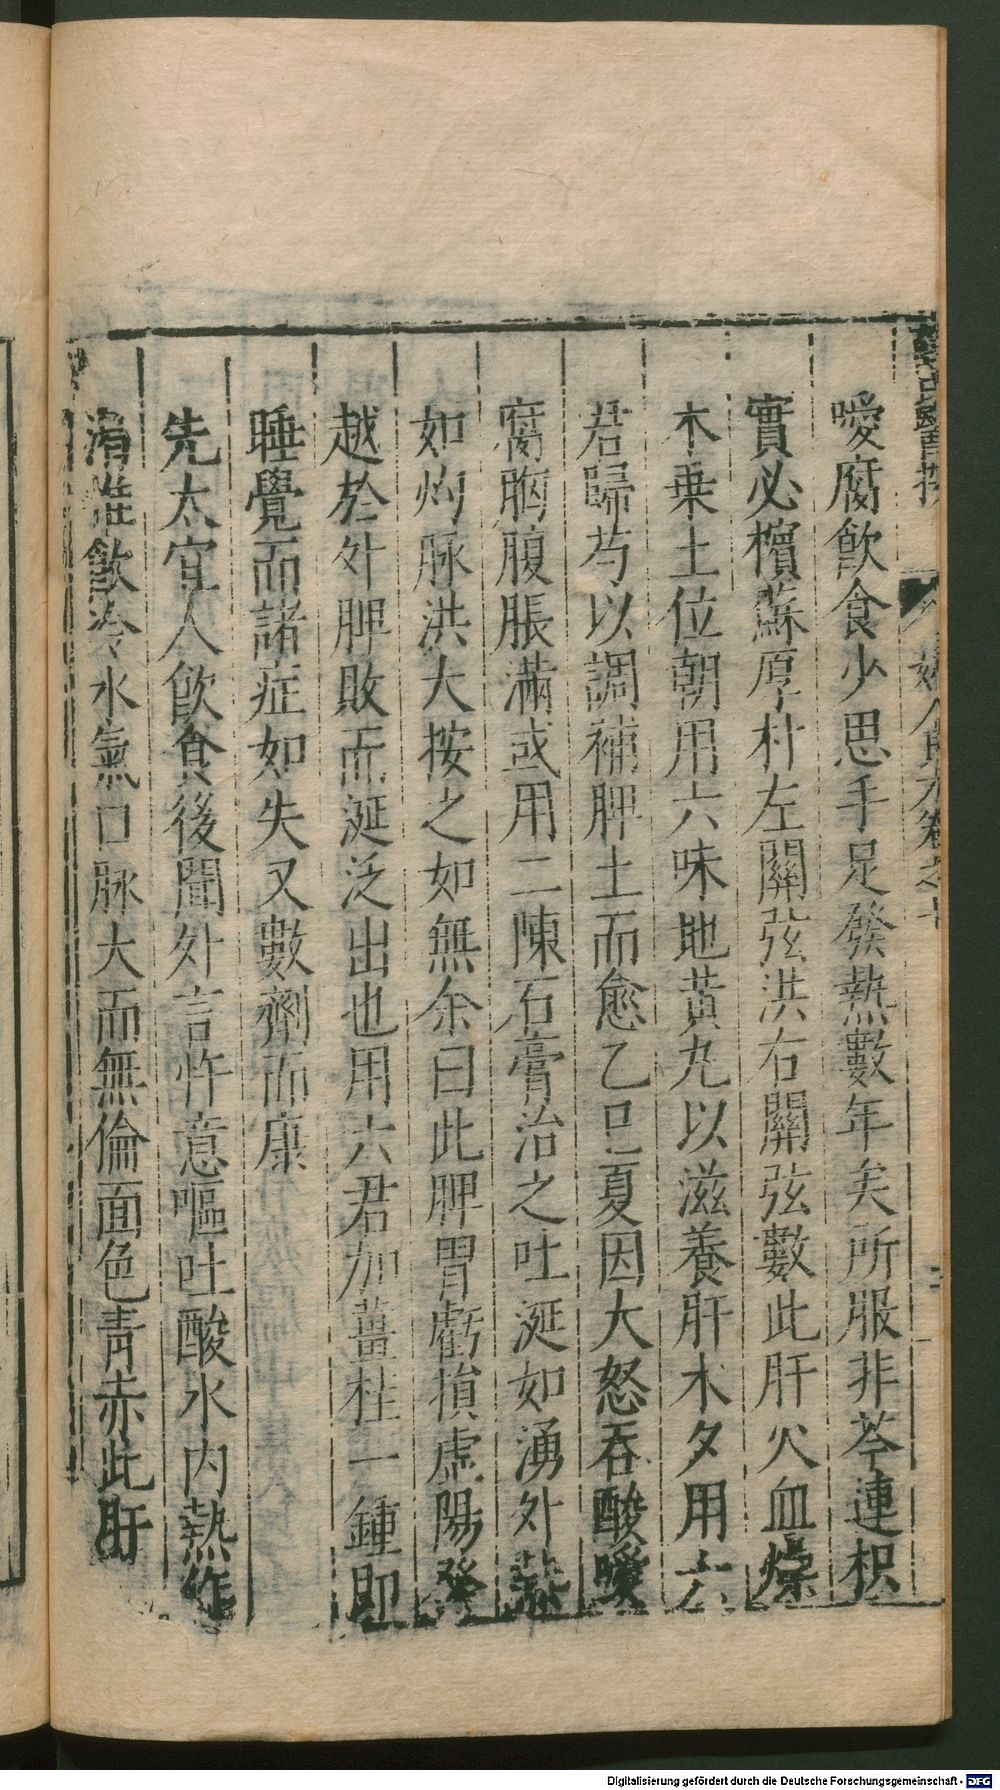 噯腐飲食少思手足發熱數年矣所服非芩連枳
實必檳蘇厚朴左關弦洪右關弦數此肝火血燥
木乗土位朝用六味地黃丸以滋養肝木夕用六
君歸芍以調補脾土而愈乙巳夏因大怒吞酸噯
腐胸腹脹滿或用二陳石膏治之吐涎如湧外熱
如灼脉洪大按之如無余曰此脾胃虧損虛陽發
越於外脾敗而涎泛出也用六君加薑桂一鍾即
睡覺而諸症如失又數劑而康
先太宜人飲食後聞外言忤意嘔吐酸水内熱作
渴惟飲冷水氣口脉大而無倫面色青赤此肝
Digitalisierung gefördert durch die Deutsche Forschungsgemeinschaft - DFG